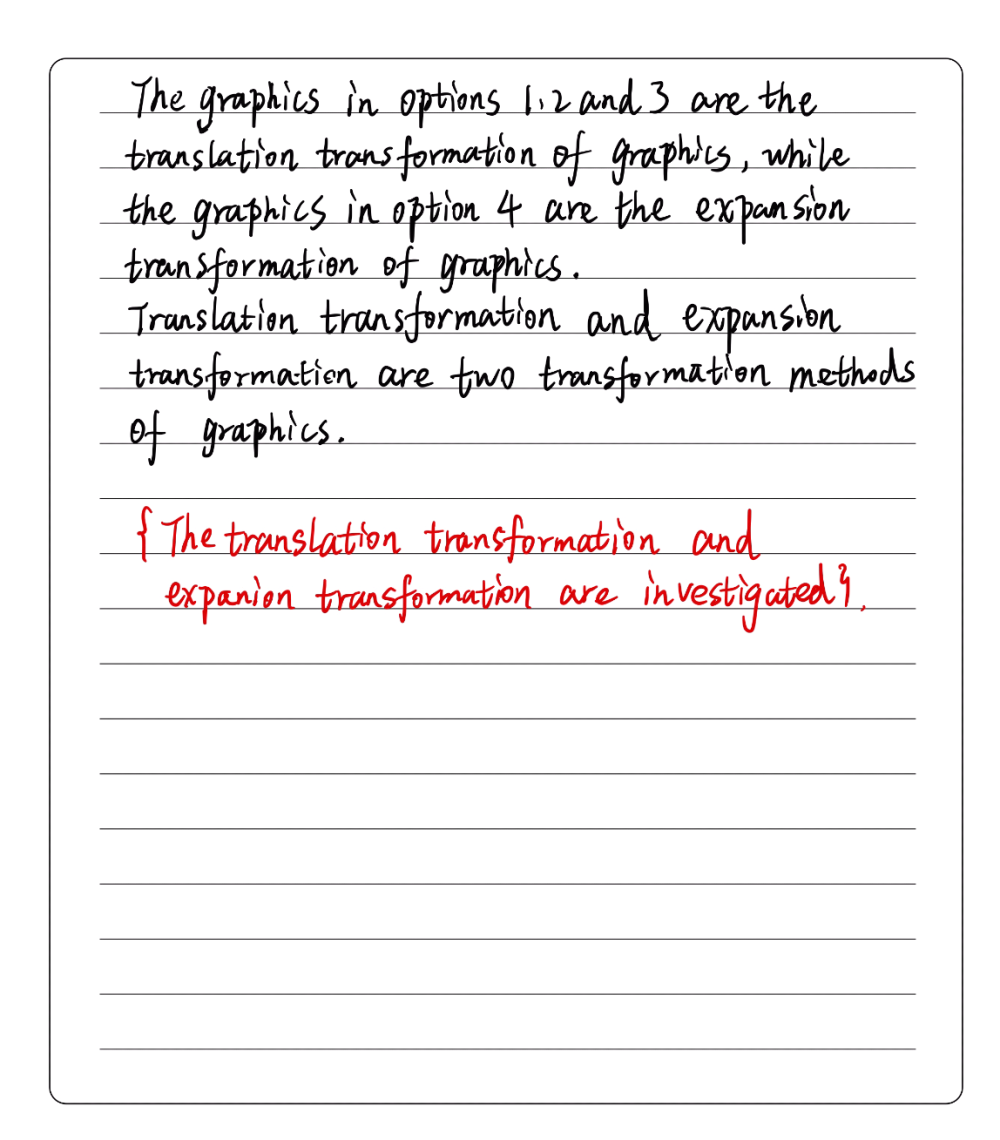 The graphics in options 1,2 and 3 are the
translation transformation of graphics, while
the graphics in option 4 are the expansion
transformation of graphics.
Translation transformation and expansion
transformation are two transformation methods
of graphics.
{The translation transformation and
expanion transformation are investigated}.